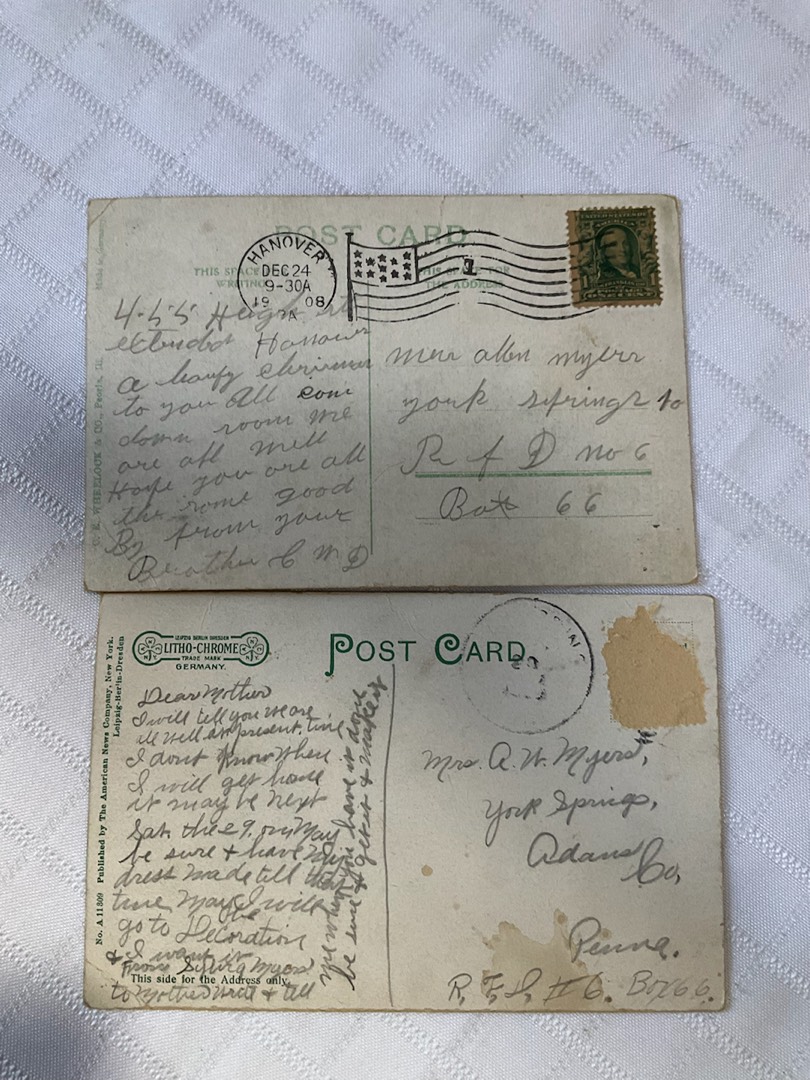 POST CARD
THIS SPACE
WRITING
THIS SPACE FOR
THE ADDRESS
HANOVER
DEC 24
9-30A
19 08
PA
4-5-5 Height st
extended Hanover
a haufy chrismer
to you All com
down room we
are all well
Hope you are all
the same good
By from your
Brother C M D
Mrer allen myers
york springs
R f D no 6
Box 66
C. E. WHEELOCK & CO., Peoria, Ill.
Made in Germany
LEIPZIG BERLIN DRESDEN
LITHO-CHROME
TRADE MARK
GERMANY.
POST CARD
No. A 11809 Published by The American News Company, New York.
Leipzig-Berlin-Dresden
Dear Mother
I will tell you we are
all well at present time
I dont know when
I will get home
it may be next
Sat. the 29. our May
be sure + have my
dress made till that
time May be I will
go to Decoration
+ I want it
From Sylvia Myers
This side for the Address only.
to Mother write + tell
me when you have it done
be sure & get it & make it
Mrs. A. W. Myers,
York Springs,
Adams Co,
Penna.
R. F. D. #6. Box 66.